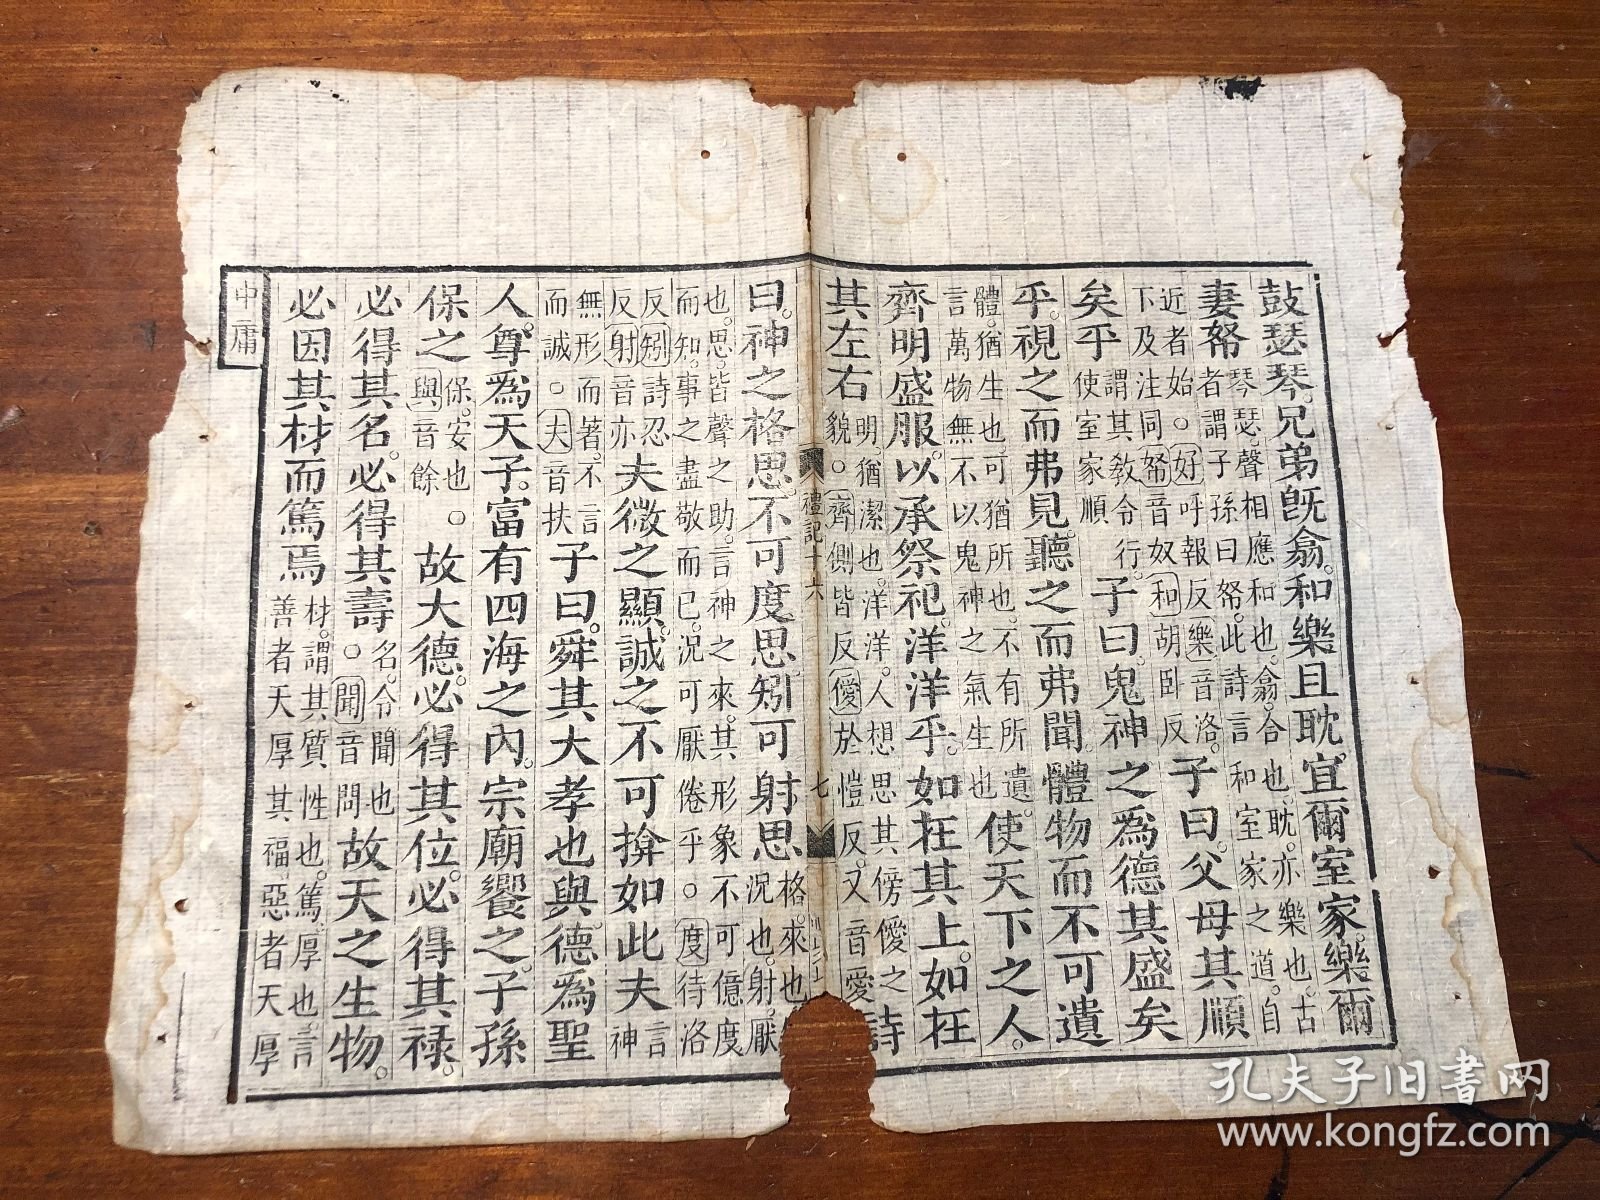 鼓瑟琴。兄弟旣翕。和樂且耽。宜爾室家。樂爾
妻帑琴瑟。聲相應和也。翕。合也。耽。亦樂也。古
者謂子孫曰帑。此詩言和室家之道。自
近者始。○好呼報反樂音洛。
下及注同帑音奴和胡卧反子曰。父母其順
矣乎謂其教令行。
使室家順子曰。鬼神之爲德其盛矣
乎。視之而弗見。聽之而弗聞。體物而不可遺
體。猶生也。可猶所也。不有所遺。
言萬物無不以鬼神之氣生也使天下之人。
齊明盛服。以承祭祀。洋洋乎。如在其上。如在
其左右明。猶潔也。洋洋。人想思其傍僾之
貌○齊側皆反僾於愷反。又音愛詩
禮記十六
七
曰。神之格思。不可度思。矧可射思格。來也
況也。射。厭
也。思。皆聲之助。言神之來。其形象不可億度
而知。事之盡敬而已。況可厭倦乎。○度待洛
反矧詩忍
反射音亦夫微之顯。誠之不可揜如此夫言
神
無形而著。不言
而誠。○夫音扶子曰。舜其大孝也與。德爲聖
人。尊爲天子。富有四海之內。宗廟饗之。子孫
保之保。安也。○
與音餘故大德。必得其位。必得其祿。
必得其名。必得其壽名。令聞也
○聞音問故天之生物。
必因其材而篤焉材。謂其質性也。篤。厚也。言
善者天厚其福。惡者天厚
中庸
孔夫子旧書网
www.kongfz.com